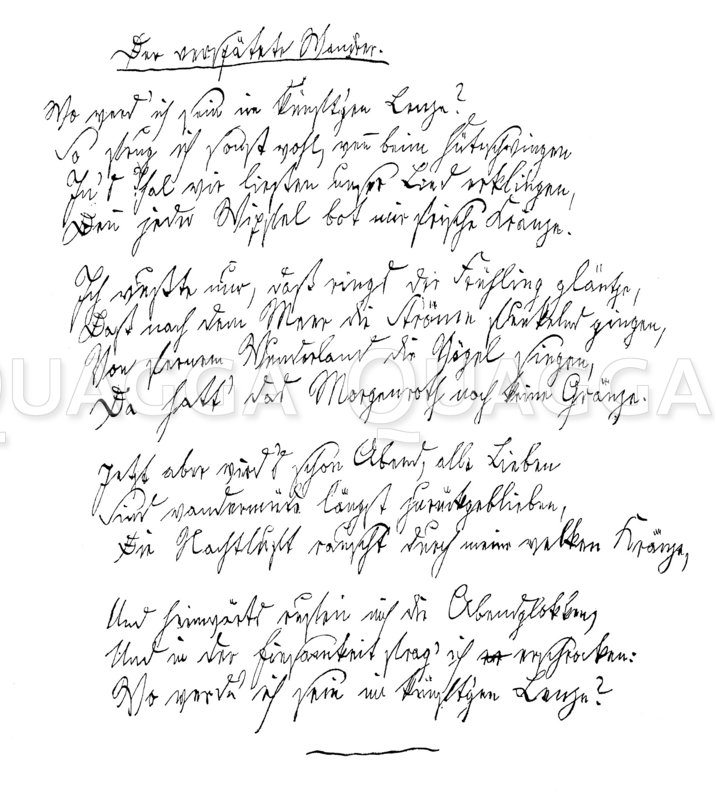 Der verspätete Wandrer.
Wo werd' ich sein im künft'gen Lenze?
So frug ich sonst wohl, wen̄ beim Hüteschwingen
In's Thal wir ließen unser Lied erklingen,
Den̄ jeder Wipfel bot mir frische Kränze.
Ich wußte nur, daß rings der Frühling glänze,
Daß nach dem Meer die Ströme funkelnd gingen,
Von fernem Wunderland die Vögel singen,
Da hatt' das Morgenroth noch keine Gränze.
QUAGGA QUAGGA
Jetzt aber wird's schon Abend, alle Lieben
Sind wandermüde längst zurückgeblieben,
Die Nachtluft rauscht durch meine welken Kränze,
Und heimwärts rufen mich die Abendglokken,
Und in der Einsamkeit frag' ich erschrocken:
Wo werd' ich sein im künft'gen Lenze?